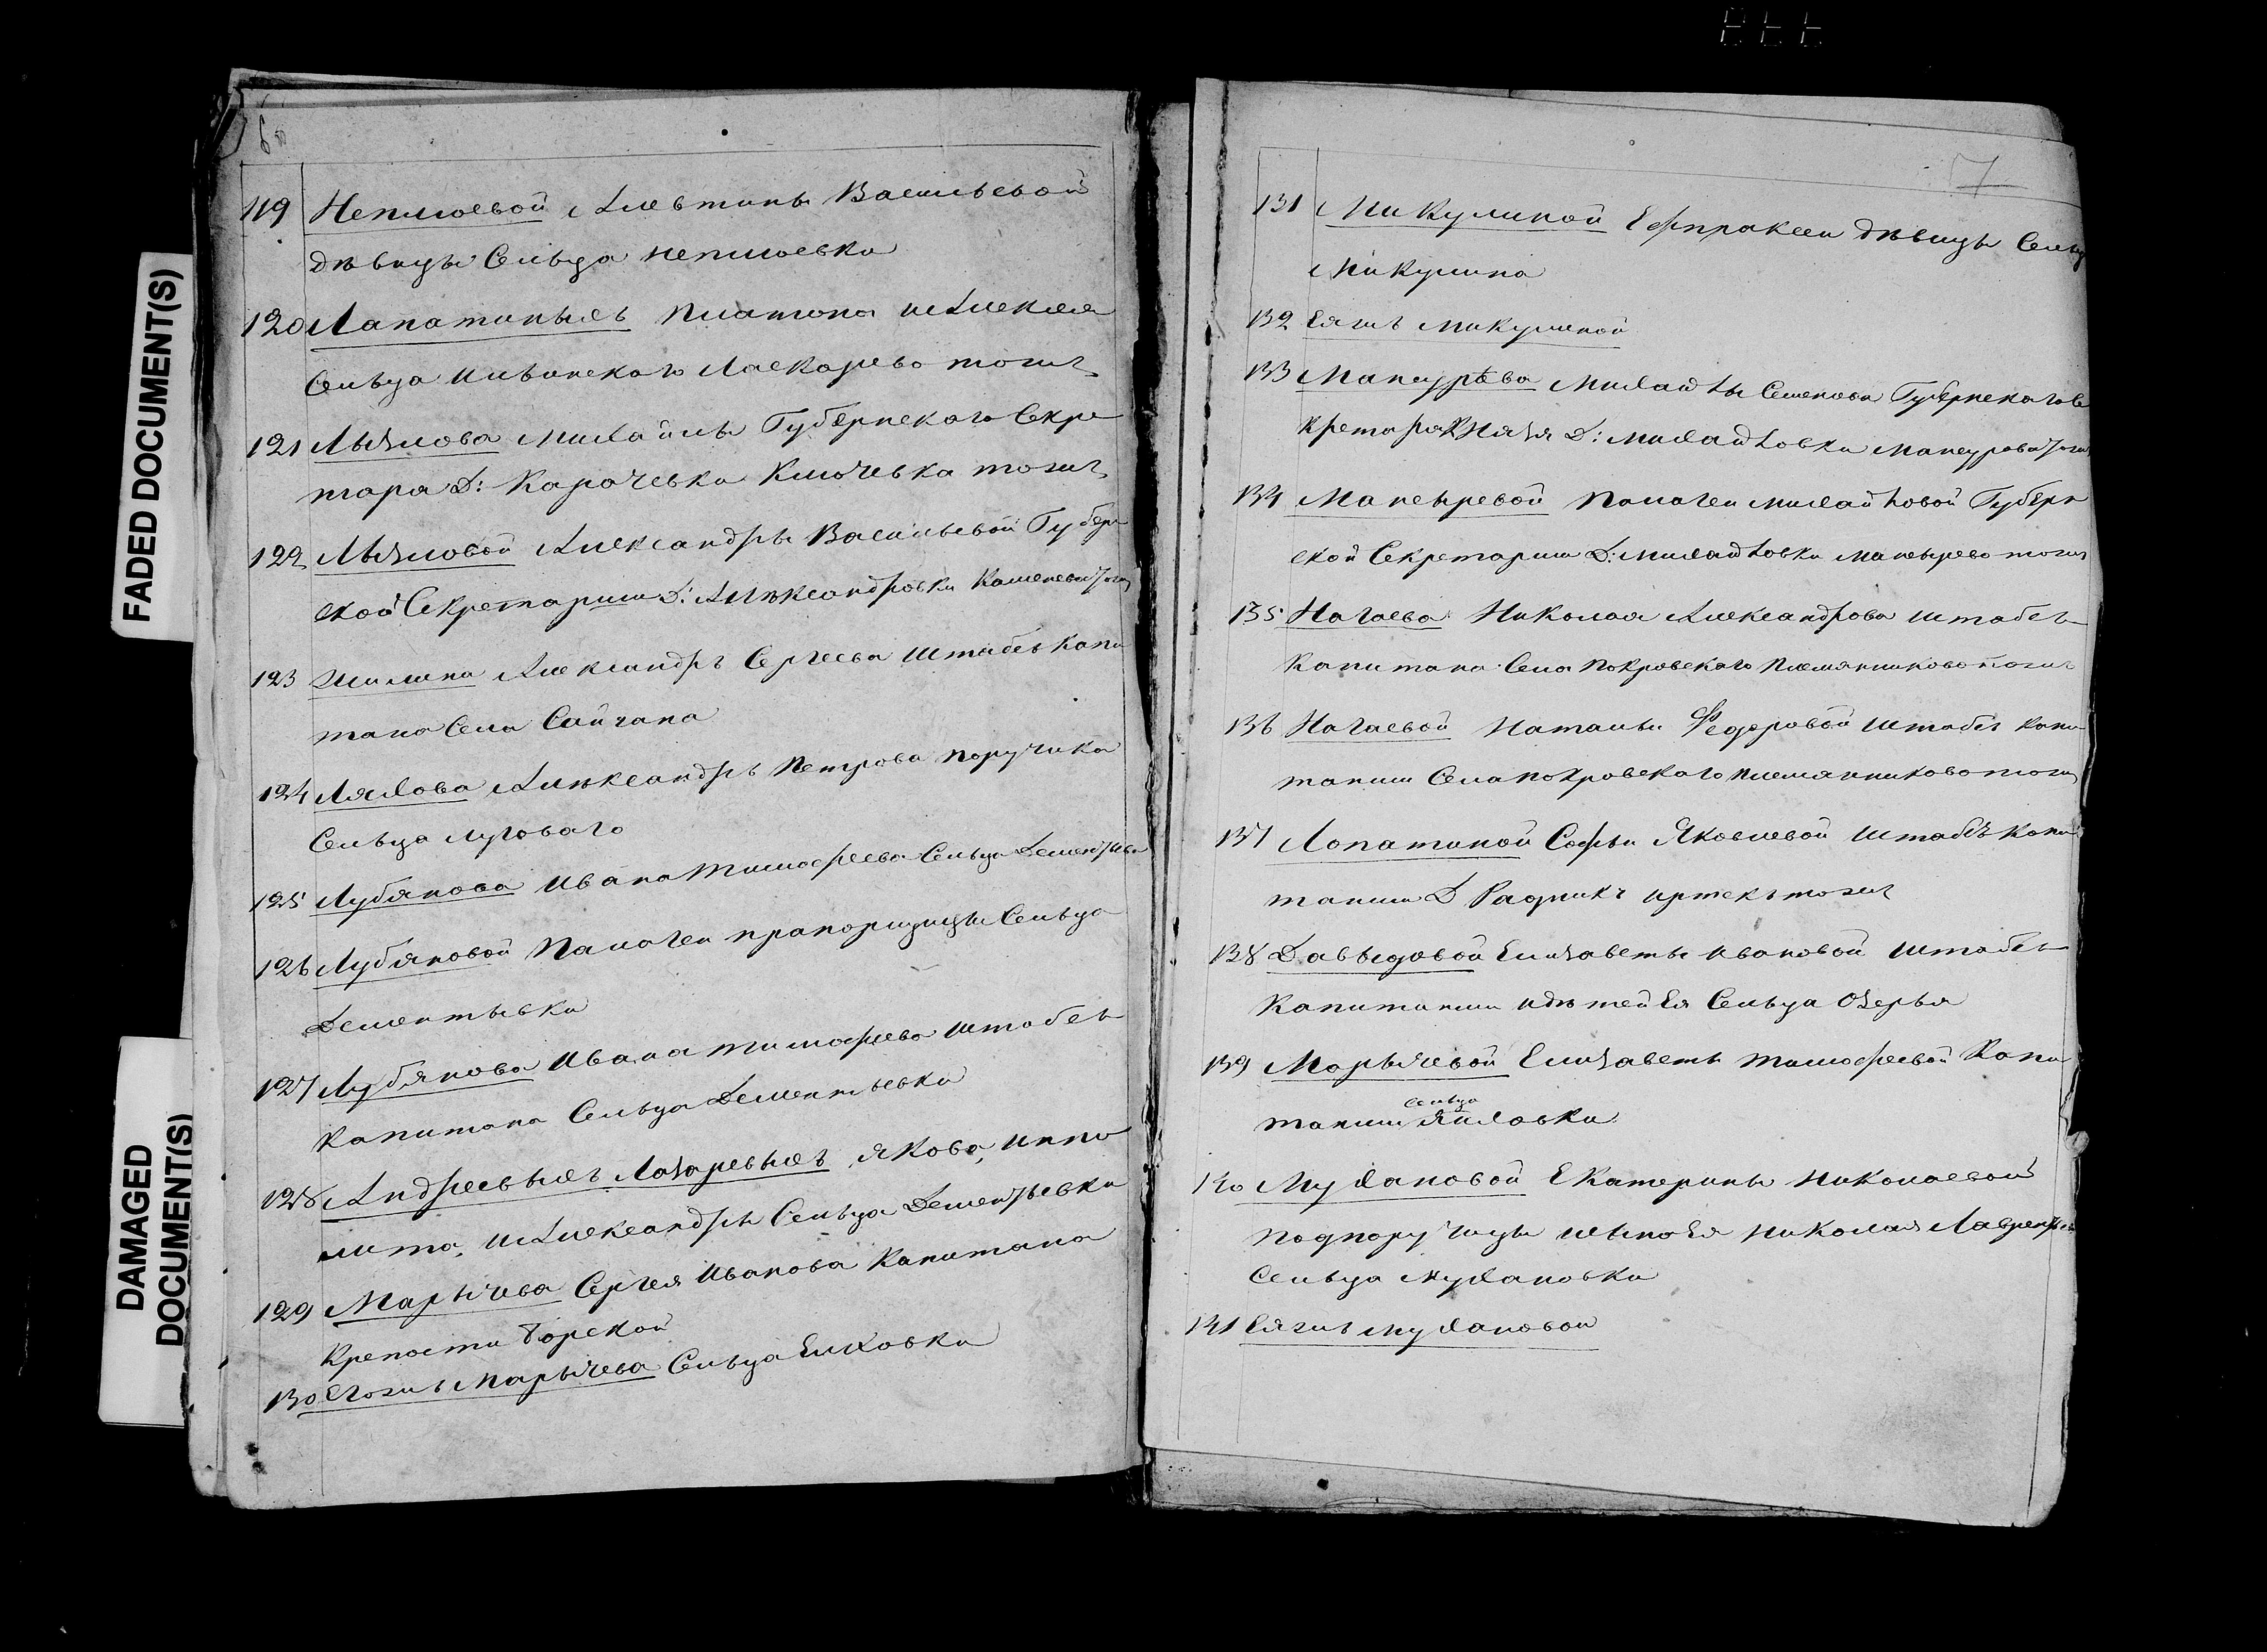 FADED DOCUMENT(S)
DAMAGED
DOCUMENT(S)
119 Неплюевой Алевтины Васильевой
дѣвицы Сельца Неплюевки
120 Лапатиныхъ Платона и Алексея
Сельца Ильинскаго Ласкарево тожъ
121 Лызлова Михайлы Губернскаго Секре
таря Д: Карачевки Ключевка тожъ
122 Лызловой Александры Васильевой Губерн
ской Секретарши Д: Алѣксандровки тожъ
123 Александръ Сергеева Штабсъ Капи
тана Села Сайгана
124 Ляхова Алѣксандръ Петрова порутчика
Сельца Луговаго
125 Лубянова Ивана Тимофеева Сельца Дементьевки
126 Лубяновой Палагеи прапорщицы Сельца
Дементьевки
127 Лубянова Ивана Тимофеева Штабсъ
Капитана Сельца Дементьевки
128 Андреевыхъ Лазаревыхъ Якова, Иппо
лита, и Александры Сельца Дементьевки
129 Марычева Сергея Иванова Капитана
Крепости Борской
130 Егожъ Марычева Сельца Елховки
7
131 Микулиной Ефпраксеи дѣвицы Сельц
Микулина
132 Еяжъ Микулиной
133 Мансурѣва Михайлы Семенова Губернскаго Се
кретаря Князя Д: Михайловки Мансурова тожъ
134 Мансыревой Палагеи Михайловой Губерн
ской Секретарши Д: Михайловки Мансырево тожъ
135 Нагаева Николая Александрова Штабсъ
Капитана Села Покровскаго Племянниково тожъ
136 Нагаевой Натальи Федоровой Штабсъ Капи
танши Села Покровскаго Племянниково тожъ
137 Лопатиной Софьи Яковлевой Штабсъ Капи
танши Д Радникъ Иртекъ тожъ
138 Давыдовой Елизаветы Ивановой Штабсъ
Капитанши и дѣтей Ея Сельца Озерья
139 Марычевой Елизаветы Тимофеевой Капи
сельца
танши Яиловки
140 Мухановой Екатерины Николаевой
подпоручицы и сына Ея Николая
Сельца Мухановки
141 Еяжъ Мухановой